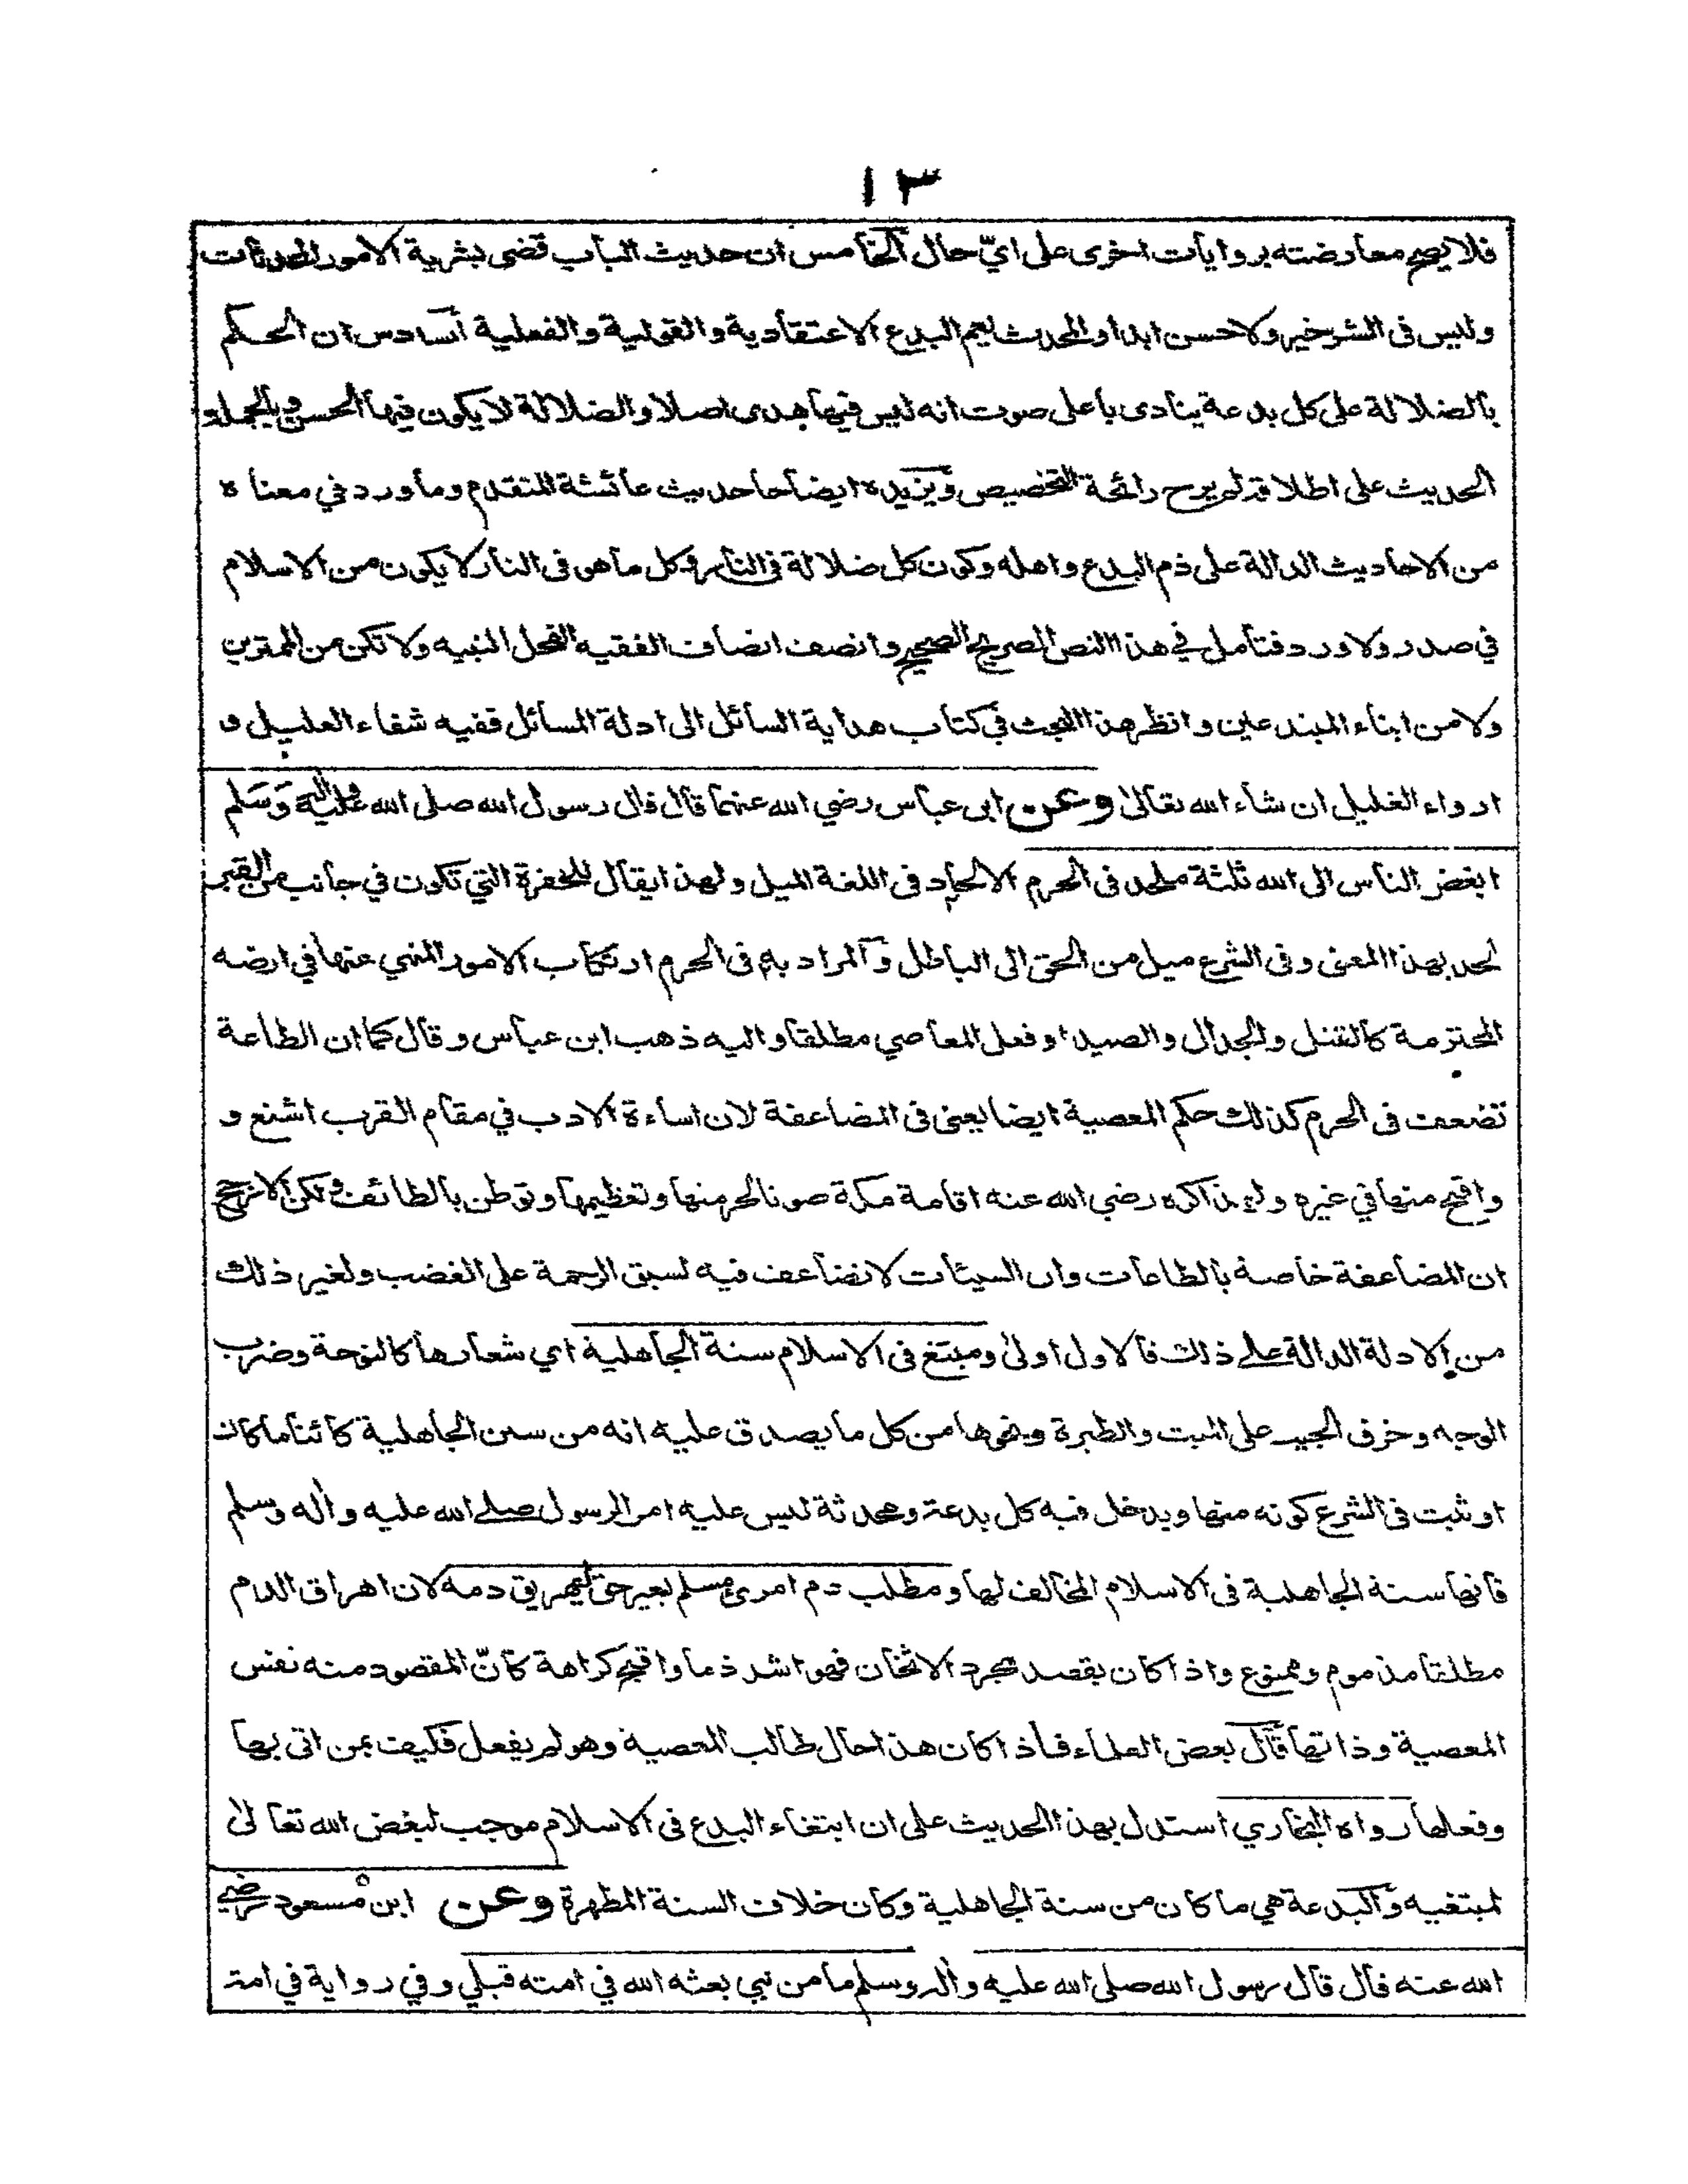 ١٣
فلا يصح معارضته بروايات اخرى على ايّ حال الخامس ان حديث الباب قضى بشرية الامور المحدثات
وليس فى الشر خير ولا حسن ابدا والمحدث يعم البدع الاعتقادية والقولية والفعلية السادس ان الحكم
بالضلالة على كل بدعة ينادى باعلى صوت انه ليس فيها هدى اصلا والضلالة لا يكون فيها الحسن وبالجملة
الحديث على اطلاقه لم يرح رائحة التخصيص ويزيده ايضاحا حديث عائشة المتقدم وما ورد في معناه
من الاحاديث الدالة على ذم البدع واهله وكون كل ضلالة فى النار وكل ما هو فى النار لا يكون من الاسلام
في صدر ولا ورد فتأمل في هذا النص الصريح الصحيح وانصف انصاف الفقيه الفحل النبيه ولا تكن من الممترين
ولا من ابناء المبتدعين وانظر هذا البحث في كتاب هداية السائل الى ادلة المسائل ففيه شفاء العليل و
ارواء الغليل ان شاء الله تعالى وعن ابن عباس رضي الله عنهما قال قال رسول الله صلى الله عليه واله وسلم
ابغض الناس الى الله ثلثة ملحد فى الحرم الالحاد فى اللغة الميل ولهذا يقال للحفرة التي تكون في جانب من القبر
لحد بهذا المعنى وفى الشرع ميل من الحق الى الباطل والمراد به فى الحرم ارتكاب الامور المنهي عنها في ارضه
المحترمة كالقتل والجدال والصيد او فعل المعاصي مطلقا واليه ذهب ابن عباس وقال كما ان الطاعة
تضعف فى الحرم كذلك حكم المعصية ايضا يعنى فى المضاعفة لان اساءة الادب في مقام القرب اشنع و
واقبح منها في غيره ولهذا كره رضي الله عنه اقامة مكة صونا لحرمتها وتعظيمها وتوطن بالطائف ولكن الارجح
ان المضاعفة خاصة بالطاعات وان السيئات لا تضاعف فيه لسبق الرحمة على الغضب ولغير ذلك
من الادلة الدالة على ذلك فالاول اولى ومبتغ فى الاسلام سنة الجاهلية اي شعارها كالنوحة وضرب
الوجه وخرق الجيب على الميت والطيرة ونحوها من كل ما يصدق عليه انه من سنن الجاهلية كائنا ما كان
او ثبت فى الشرع كونه منها ويدخل فيه كل بدعة ومحدثة ليس عليه امر الرسول صلى الله عليه واله وسلم
فانها سنة الجاهلية فى الاسلام المخالف لها ومطلب دم امرئ مسلم بغير حق ليهريق دمه لان اهراق الدم
مطلقا مذموم وممنوع واذا كان بقصد مجرد الاثخان فهو اشد ذما واقبح كراهة كأنّ المقصود منه نفس
المعصية وذاتها قال بعض العلماء فاذا كان هذا حال طالب المعصية وهو لم يفعل فكيف بمن اتى بها
وفعلها رواه البخاري استدل بهذا الحديث على ان ابتغاء البدع فى الاسلام موجب لبغض الله تعالى
لمبتغيه والبدعة هي ما كان من سنة الجاهلية وكان خلاف السنة المطهرة وعن ابن مسعود رضي
الله عنه قال قال رسول الله صلى الله عليه واله وسلم ما من نبي بعثه الله في امته قبلي وفي رواية في امة